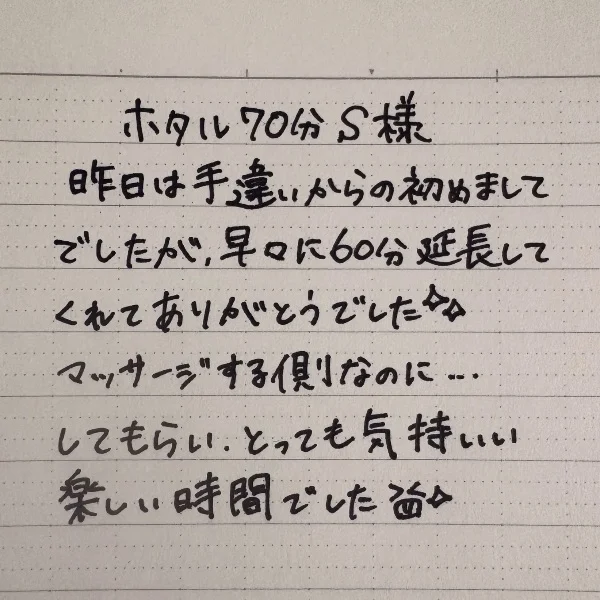 ホタル70分 S様
昨日は手違いからの初めまして
でしたが、早々に60分延長して
くれてありがとうでした✧✧
マッサージする側なのに…
してもらい、とっても気持いい
楽しい時間でした✧